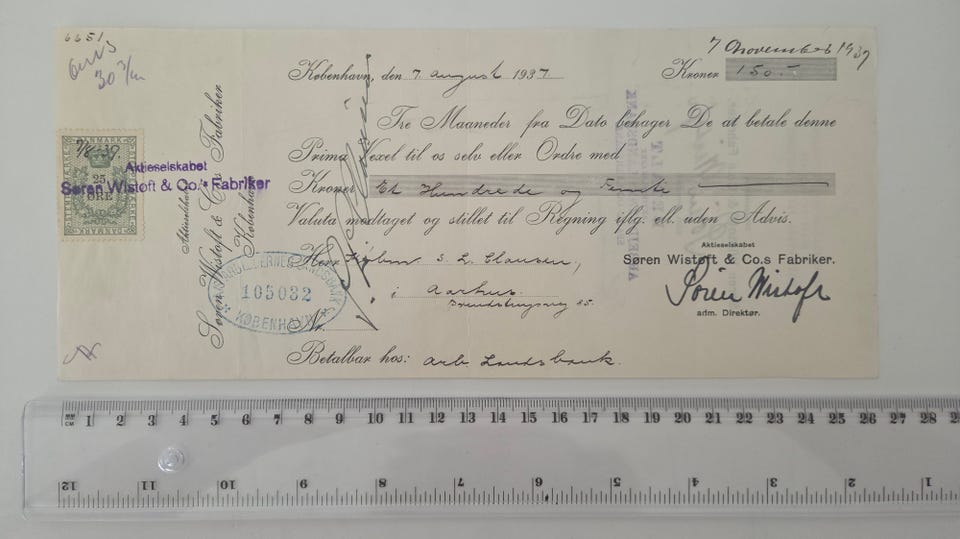 6651
30 3/m
7 November 1937
København, den 7. august 1937.
Kroner 150.-
Tre Maaneder fra Dato behager De at betale denne
Prima Vexel til os selv eller Ordre med
Kroner Et Hundrede og Femte
Valuta modtaget og stillet til Regning iflg. ell. uden Advis.
Herr Købm S. L. Clausen,
i Aarhus.
85.
No.
Betalbar hos: Arb. Landsbank.
Aktieselskabet
Søren Wistoft & Co.s Fabriker.
Søren Wistoft
adm. Direktør.
DANMARK
7/8-37
25
ØRE
DANMARK
Aktieselskabet
Søren Wistoft & Co.'s Fabriker
Aktieselskabet
Søren Wistoft & Co.s Fabriker
København
ARBEJDERNES LANDSBANK
105032
KØBENHAVN
MM
CM
1 2 3 4 5 6 7 8 9 10 11 12 13 14 15 16 17 18 19 20 21 22 23 24 25 26 27 28
12 11 10 9 8 7 6 5 4 3 2 1